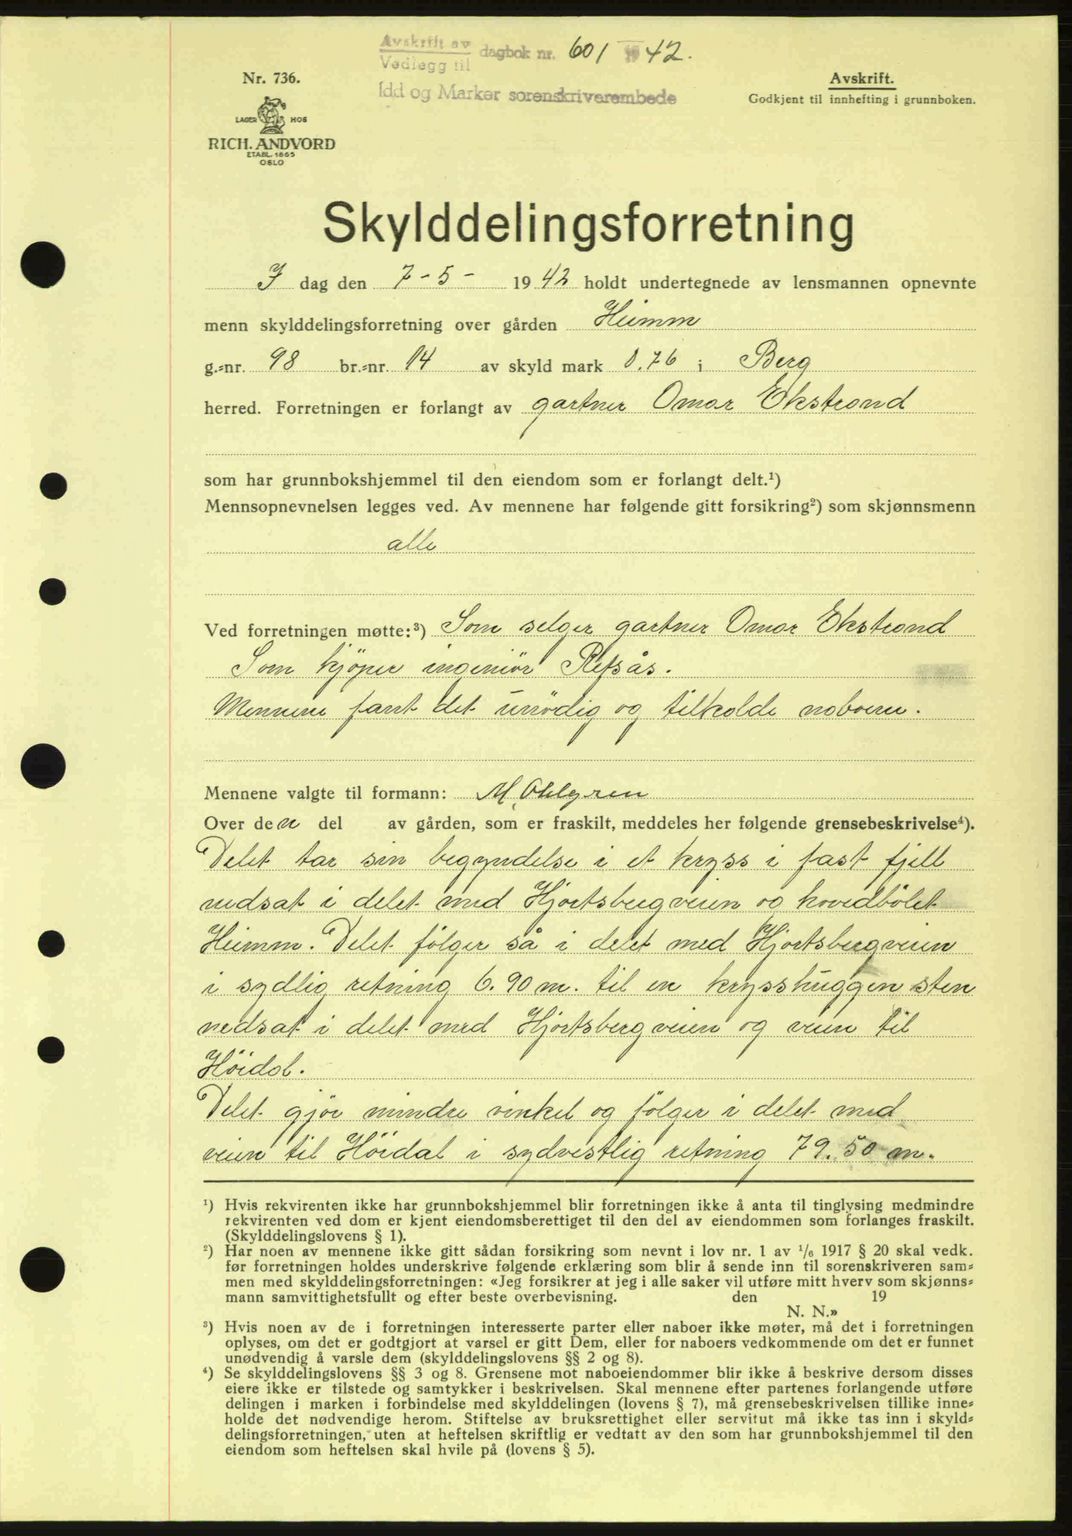 Avskrift av
Vedlegg til
dagbok nr. 601 1942.
Idd og Marker sorenskriverembede
Nr. 736.
LAGER HOS
RICH. ANDVORD
ETABL. 1865
OSLO
Avskrift.
Godkjent til innhefting i grunnboken.
Skylddelingsforretning
I dag den 7-5- 1942 holdt undertegnede av lensmannen opnevnte
menn skylddelingsforretning over gården Heimm
g.=nr. 98 br.=nr. 14 av skyld mark 0.76 i Berg
herred. Forretningen er forlangt av gartner Omar Ekstrand
som har grunnbokshjemmel til den eiendom som er forlangt delt.¹)
Mennsopnevnelsen legges ved. Av mennene har følgende gitt forsikring²) som skjønnsmenn
alle
Ved forretningen møtte:³) Som selger gartner Omar Ekstrand
Som kjöper ingeniör Refsås.
Mennene fant det unödig og tilkalde naboene.
Mennene valgte til formann: M. Ohlgren
Over den del av gården, som er fraskilt, meddeles her følgende grensebeskrivelse⁴).
Delet tar sin begyndelse i et kryss i fast fjell
nedsat i delet med Hjortsbergveien og hovedbölet
Heimm. Delet fölger så i delet med Hjortsbergveien
i sydlig retning 6.90 m. til en krysshuggen sten
nedsat i delet med Hjortsbergveien og veien til
Höidal.
Delet gjör mindre vinkel og fölger i delet med
veien til Höidal i sydvestlig retning 79.50 m.
¹) Hvis rekvirenten ikke har grunnbokshjemmel blir forretningen ikke å anta til tinglysing medmindre
rekvirenten ved dom er kjent eiendomsberettiget til den del av eiendommen som forlanges fraskilt.
(Skylddelingslovens § 1).
²) Har noen av mennene ikke gitt sådan forsikring som nevnt i lov nr. 1 av 1/6 1917 § 20 skal vedk.
før forretningen holdes underskrive følgende erklæring som blir å sende inn til sorenskriveren sam=
men med skylddelingsforretningen: «Jeg forsikrer at jeg i alle saker vil utføre mitt hverv som skjønns=
mann samvittighetsfullt og efter beste overbevisning. den 19
N. N.»
³) Hvis noen av de i forretningen interesserte parter eller naboer ikke møter, må det i forretningen
oplyses, om det er godtgjort at varsel er gitt Dem, eller for naboers vedkommende om det er funnet
unødvendig å varsle dem (skylddelingslovens §§ 2 og 8).
⁴) Se skylddelingslovens §§ 3 og 8. Grensene mot naboeiendommer blir ikke å beskrive dersom disses
eiere ikke er tilstede og samtykker i beskrivelsen. Skal mennene efter partenes forlangende utføre
delingen i marken i forbindelse med skylddelingen (lovens § 7), må grensebeskrivelsen tillike inne=
holde det nødvendige herom. Stiftelse av bruksrettighet eller servitut må ikke tas inn i skyld=
delingsforretningen, uten at heftelsen skriftlig er vedtatt av den som har grunnbokshjemmel til den
eiendom som heftelsen skal hvile på (lovens § 5).